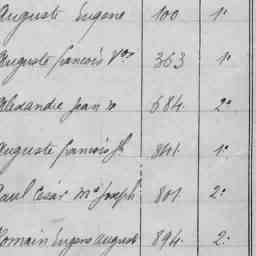 Auguste Eugene 100 1º
Auguste francois Vor 363 1º
Alexandre Jean 684. 2º
Auguste francois Jh 801 1º
Paul César Mie Joseph 801 2º
Romain Eugene August 894. 2º